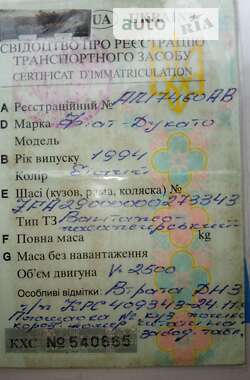 AUTO RIA
UA UKRAINE
СВІДОЦТВО ПРО РЕЄСТРАЦІЮ
ТРАНСПОРТНОГО ЗАСОБУ
CERTIFICAT D'IMMATRICULATION
A Реєстраційний № АП17460АВ
D Марка Фіат-Дукато
Модель
B Рік випуску 1994
Колір Білий
E Шасі (кузов, рама, коляска) №
ZFA29000000273343
Тип ТЗ Вантажно-
пасажирський
F Повна маса kg
G Маса без навантаження
Об'єм двигуна V-2500
Особливі відмітки: Втрата ДНЗ
н/п КРС 409343-24.11
Площадка № куз
номер на
завод. табл.
КХС № 540665